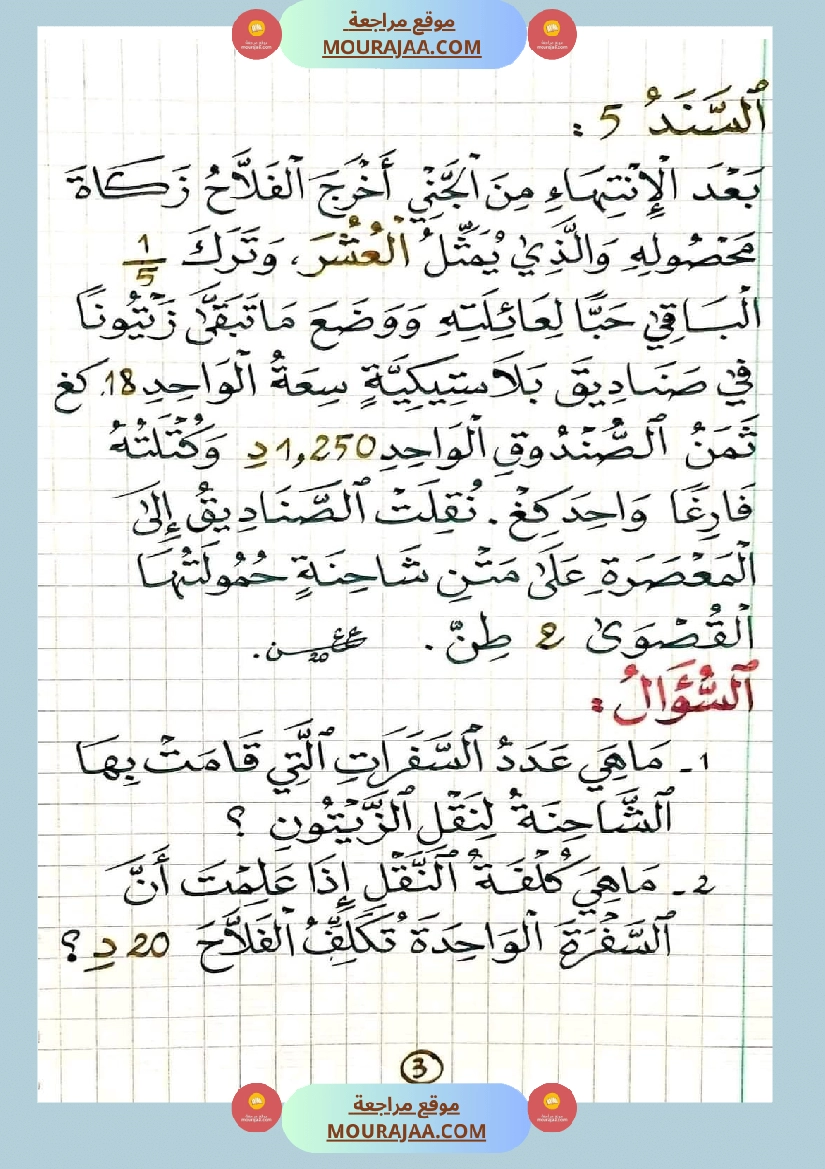 موقع مراجعة
MOURAJAA.COM
ٱلسَّنَدُ 5 :
بَعْدَ ٱلْإِنْتِهَاءِ مِنَ ٱلْجَنْيِ أَخْرَجَ ٱلْفَلَّاحُ زَكَاةَ
مَحْصُولِهِ وَالَّذِي يُمَثِّلُ ٱلْعُشْرَ، وَتَرَكَ 1/5
ٱلْبَاقِي حَبًّا لِعَائِلَتِهِ وَوَضَعَ مَا تَبَقَّى زَيْتُونًا
فِي صَنَادِيقَ بَلَاسْتِيكِيَّةٍ سِعَةُ ٱلْوَاحِدِ 18 كغ
ثَمَنُ ٱلصُّنْدُوقِ ٱلْوَاحِدِ 1,250 دِ وَكُتْلَتُهُ
فَارِغًا وَاحِد كِغْ . نُقِلَتْ ٱلصَّنَادِيقُ إِلَى
ٱلْمَعْصَرَةِ عَلَى مَتْنِ شَاحِنَةٍ حُمُولَتُهَا
ٱلْقُصْوَى 2 طِنّ .
ٱلسُّؤَالُ :
1 ـ مَاهِيَ عَدَدُ ٱلسَّفَرَاتِ ٱلَّتِي قَامَتْ بِهَا
ٱلشَّاحِنَةُ لِنَقْلِ ٱلزَّيْتُونِ ؟
2 ـ مَاهِيَ كُلْفَةُ ٱلنَّقْلِ إِذَا عَلِمْتَ أَنَّ
ٱلسَّفْرَةَ ٱلْوَاحِدَةَ تُكَلِّفُ ٱلْفَلَّاحَ 20 دِ ؟
3
موقع مراجعة
MOURAJAA.COM